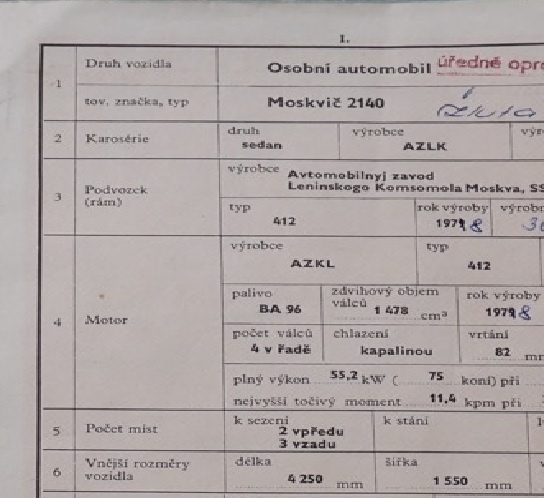 I.
1 Druh vozidla Osobní automobil úředně
tov. značka, typ Moskvič 2140
2 Karosérie druh sedan výrobce AZLK
3 Podvozek (rám) výrobce Avtomobilnyj zavod
Leninskogo Komsomola Moskva,
typ 412 rok výroby 1978 výrobn
4 Motor výrobce AZKL typ 412
palivo BA 96 zdvihový objem válců 1 478 cm³ rok výroby 1978
počet válců 4 v řadě chlazení kapalinou vrtání 82 mm
plný výkon 55,2 kW ( 75 koní) při
nejvyšší točivý moment 11,4 kpm při
5 Počet míst k sezení 2 vpředu k stání
3 vzadu
6 Vnější rozměry vozidla délka 4 250 mm šířka 1 550 mm